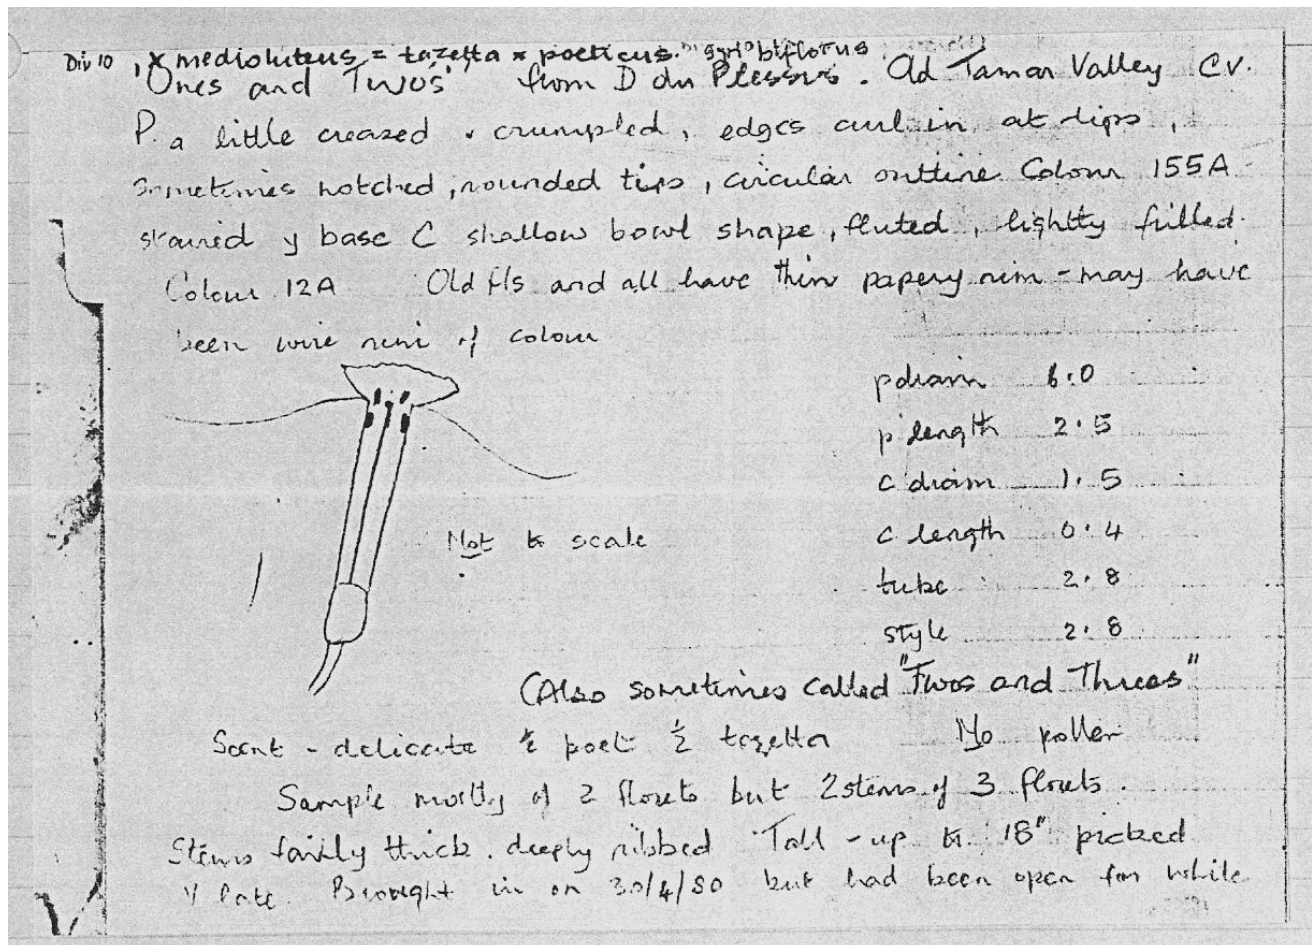 Div 10, x medioluteus = tazetta x poeticus. syn biflorus
'Ones and Twos' from D du Plessis. Old Tamar Valley cv.
P. a little creased & crumpled, edges curl in at tips,
sometimes notched, rounded tips, circular outline Colour 155A
stained y base C shallow bowl shape, fluted, lightly frilled.
Colour 12A Old fls and all have thin papery rim - may have
been wire rim of colour
p diam 6.0
p length 2.5
c diam 1.5
c length 0.4
tube 2.8
style 2.8
Not to scale
(Also sometimes called "Twos and Threes"
Scent - delicate ½ poet ½ tazetta No pollen
Sample mostly of 2 florets but 2 stems of 3 florets.
Stems fairly thick. deeply ribbed Tall - up to 18" picked
V late. Brought in on 30/4/80 but had been open for while